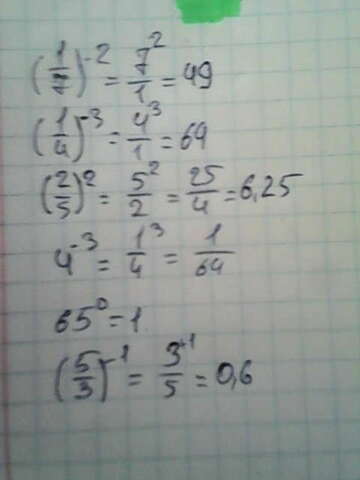 (1/7)^-2 = 7^2/1 = 49
(1/4)^-3 = 4^3/1 = 64
(2/5)^2 = 5^2/2 = 25/4 = 6,25
4^-3 = 1^3/4 = 1/64
65^0 = 1
(5/3)^-1 = 3^+1/5 = 0,6